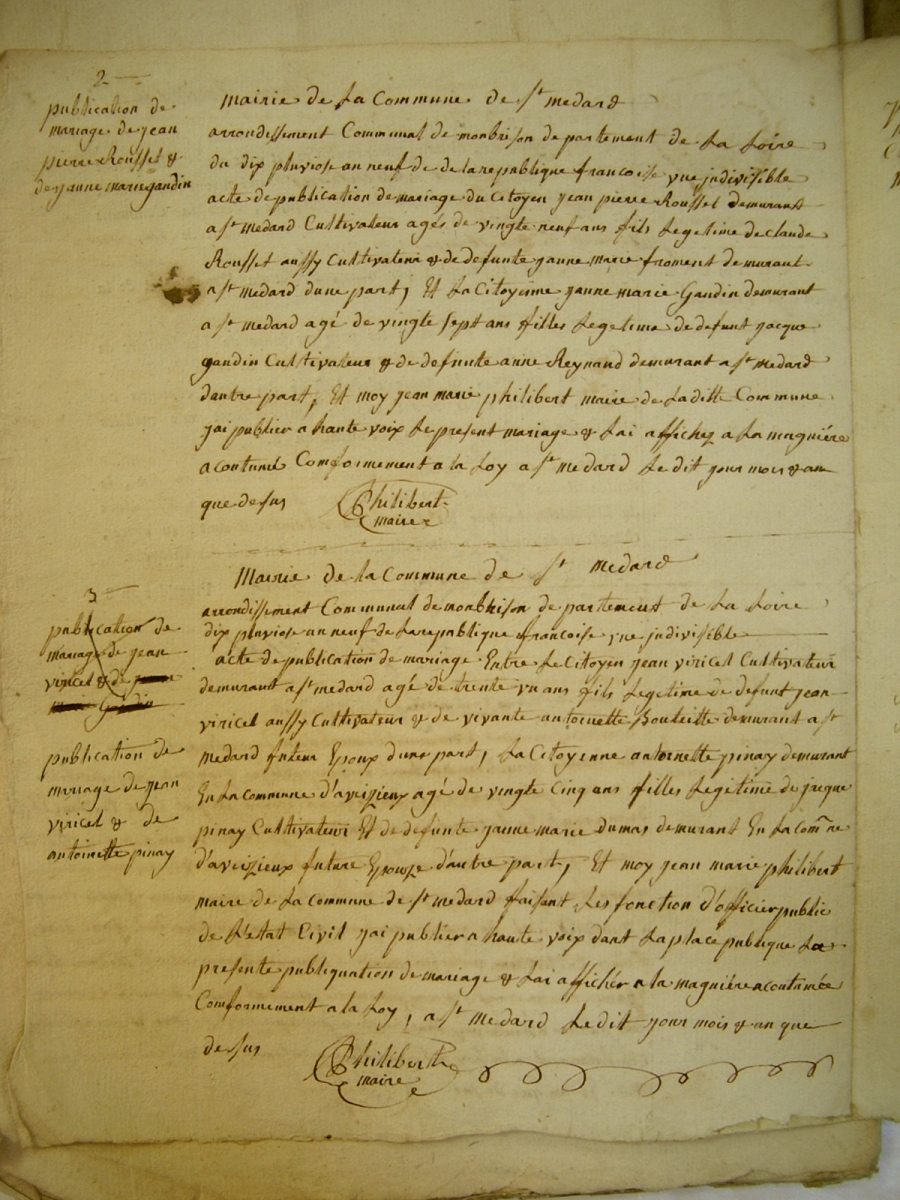 2
publication de
mariage de jean
pierre Rousset &
de jeanne marie gandin
Mairie de La Commune de St medard
arrondissement Communal de monbrison departement de La Loire
du dix pluviose an neuf de de la republique francoise vne jndivisible
acte de publication de mariage du Citoyen jean pierre Rousset demurant
a St medard Cultivateur agés de vingt neuf ans fils Legetime de Claude
Rousset aussy Cultivateur & de defunte janne marie froment demurant
a St medard dune part, Et La Citoyenne janne marie Gandin demurant
a St medard agé de vingt sept ans filles Legetime de defunt jacque
gandin Cultivateur & de defunte anne Reynand demurant a St medard
dautre part, Et moy jean marie philibert maire de La ditte Commune
jai publier a haute voix Le present mariage & Lai affichez a La magniére
acoutumé Comformement a la Loy a St medard Le dit jour mois & an
que desus
Philibert
maire
3
publication de
mariage de jean
viricel & de
publication de
mariage de jean
viricel & de
antoinette pinay
Mairie de la Commune de St medard
arrondissement Communal de monbrison departement de La Loire
dix pluviose an neuf de La republique francoise vne jndivisible
acte de publication de mariage Entre Le Citoyen jean viricel Cultivateur
demurant a St medard agé de trente vn ans fils Legetime de defunt jean
viricel aussy Cultivateur & de vivante antoinette Bouteitte demurant a St
medard futeur Epoux dune part, La Citoyenne antoinette pinay demurant
En La Commune d'aveizieux agé de vingt Cinq ans filles Legitime de jacque
pinay Cultivateur Et de defunte janne marie dumas demurant En La Comne
d'aveizieux future Epouze d'autre part, Et moy jean marie philibert
maire de La Commune de St medard faisant Les fonction d'officier public
de L'etat Civil jai publier a haute voix dant La place publique La
presente publiquation de mariage & Lai affichér a la magniére acoutumée
Comformement a la Loy, a St medard Le dit jour mois & an que
desus
Philibert
maire